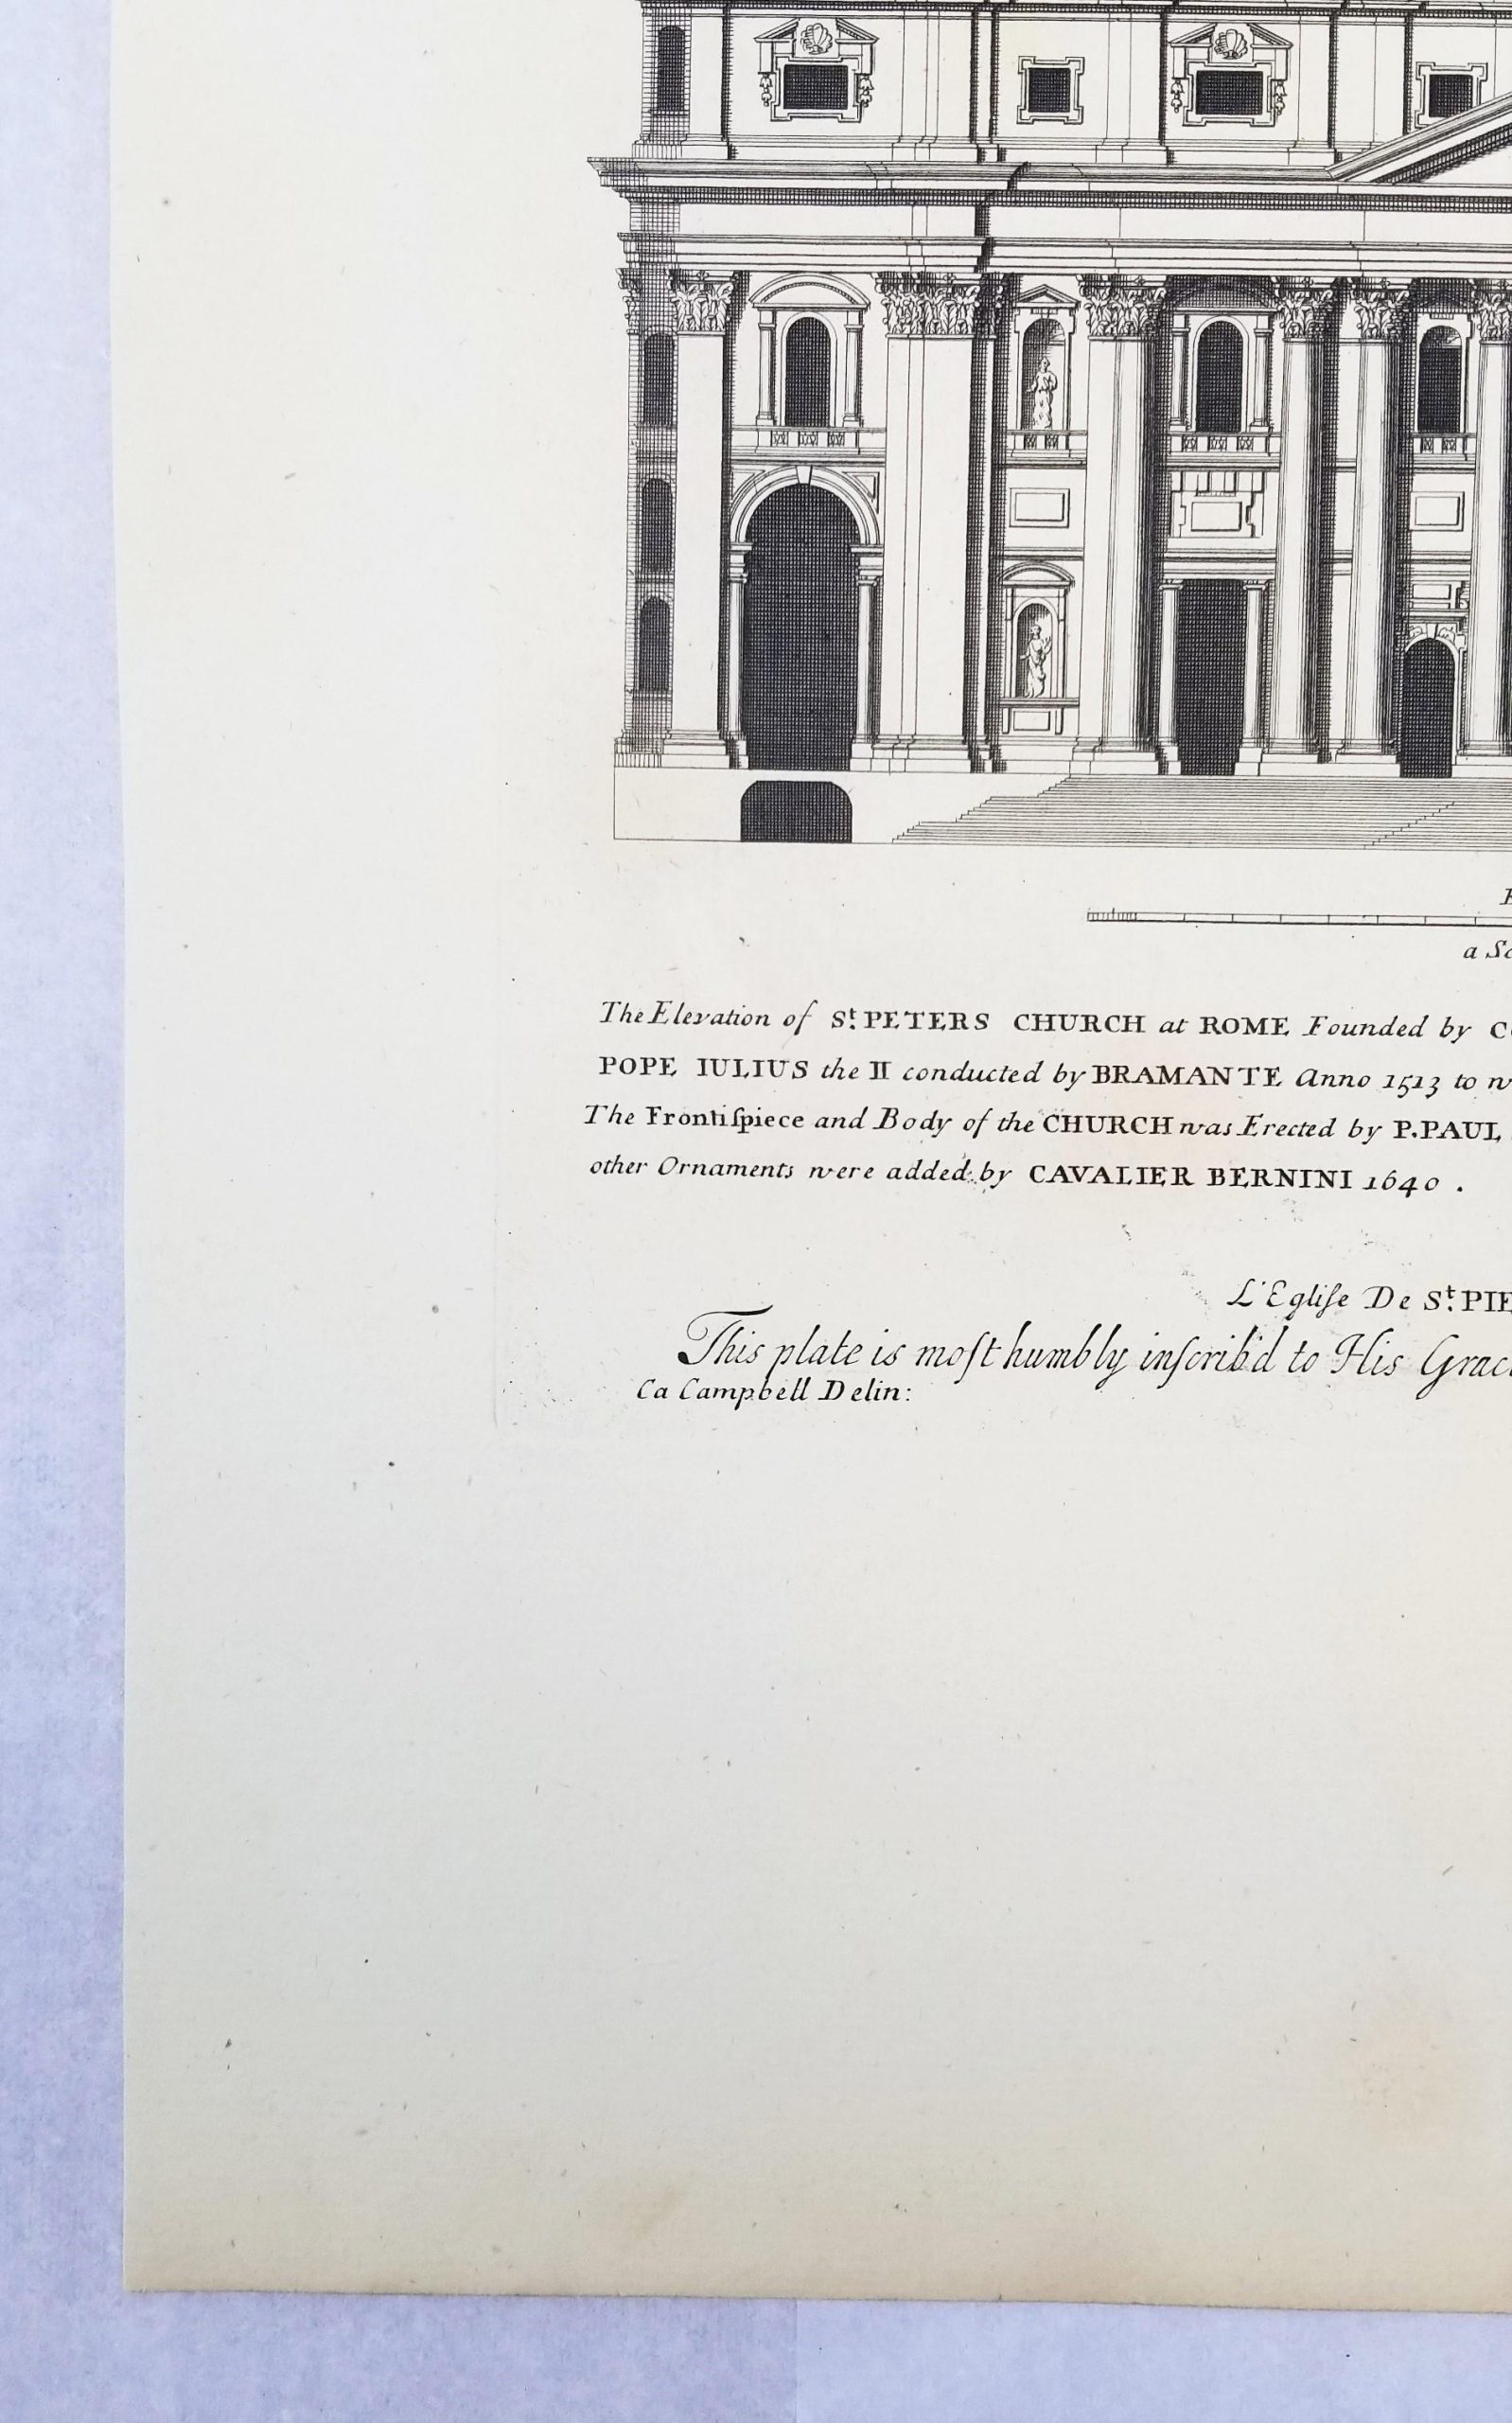 a
The Elevation of St. PETERS CHURCH at ROME Founded by
POPE IULIUS the II conducted by BRAMANTE Anno 1513 to
The Frontiſpiece and Body of the CHURCH was Erected by P. PAUL
other Ornaments were added by CAVALIER BERNINI 1640 .
L'Egliſe De St. PIE
This plate is moſt humbly inſcrib'd to His Grac
Ca Campbell Delin: